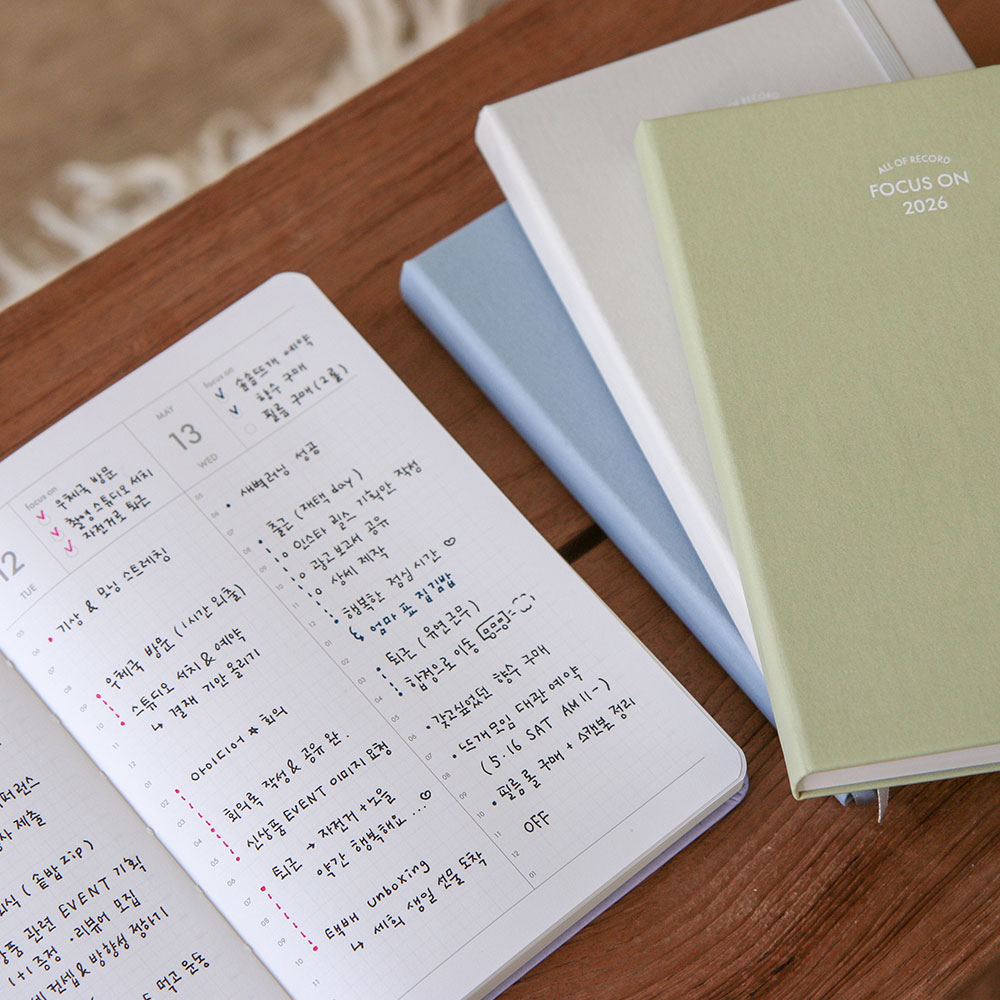 ALL OF RECORD
FOCUS ON
2026
퍼런스
사 제출
식 (솥밥 zip)
상품 관련 EVENT 기획
1+1 증정 · 리뷰어 모집
컨셉 & 방향성 정하기
먹고 운동
12
TUE
focus on
우체국 방문
촬영 스튜디오 서치
자전거로 퇴근
05
06
07
08
09
10
11
01
02
03
04
05
06
07
08
09
10
11
• 기상 & 모닝 스트레칭
우체국 방문 (1시간 외출)
스튜디오 서치 & 예약
↳ 결재 기안 올리기
아이디어 ★ 회의
회의록 작성 & 공유 완.
신상품 EVENT 이미지 요청
퇴근 → 자전거 + 노을
약간 행복해요 ...♡
택배 unboxing
↳ 세희 생일 선물 도착
MAY
13
WED
focus on
솜솜뜨개 예약
향수 구매
필름 구매 (2롤)
05
06
07
08
09
10
11
12
01
02
03
04
05
06
07
08
09
10
11
12
01
• 새벽러닝 성공
• 출근 (재택 day)
o 인스타 릴스 기획안 작성
o 광고 보고서 공유
상세 제작
• 행복한 점심시간 ♡
↳ 엄마 표 집김밥
• 퇴근 (유연근무)
• 합정으로 이동
• 갖고싶었던 향수 구매
• 뜨개모임 대관 예약
(5.16 SAT AM 11-)
• 필름롤 구매 + 스캔본 정리
OFF